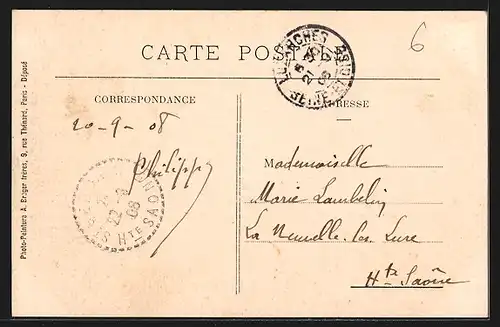 CARTE POSTALE
6
CORRESPONDANCE
ADRESSE
20-9-08
Philipp
Mademoiselle
Marie Lambelin
La Neuvelle-les-Lure
Hte Saône
21
22-9
08
Hte SAONE
Photo-Peinture A. Breger frères, 9, rue Thénard, Paris - Déposé